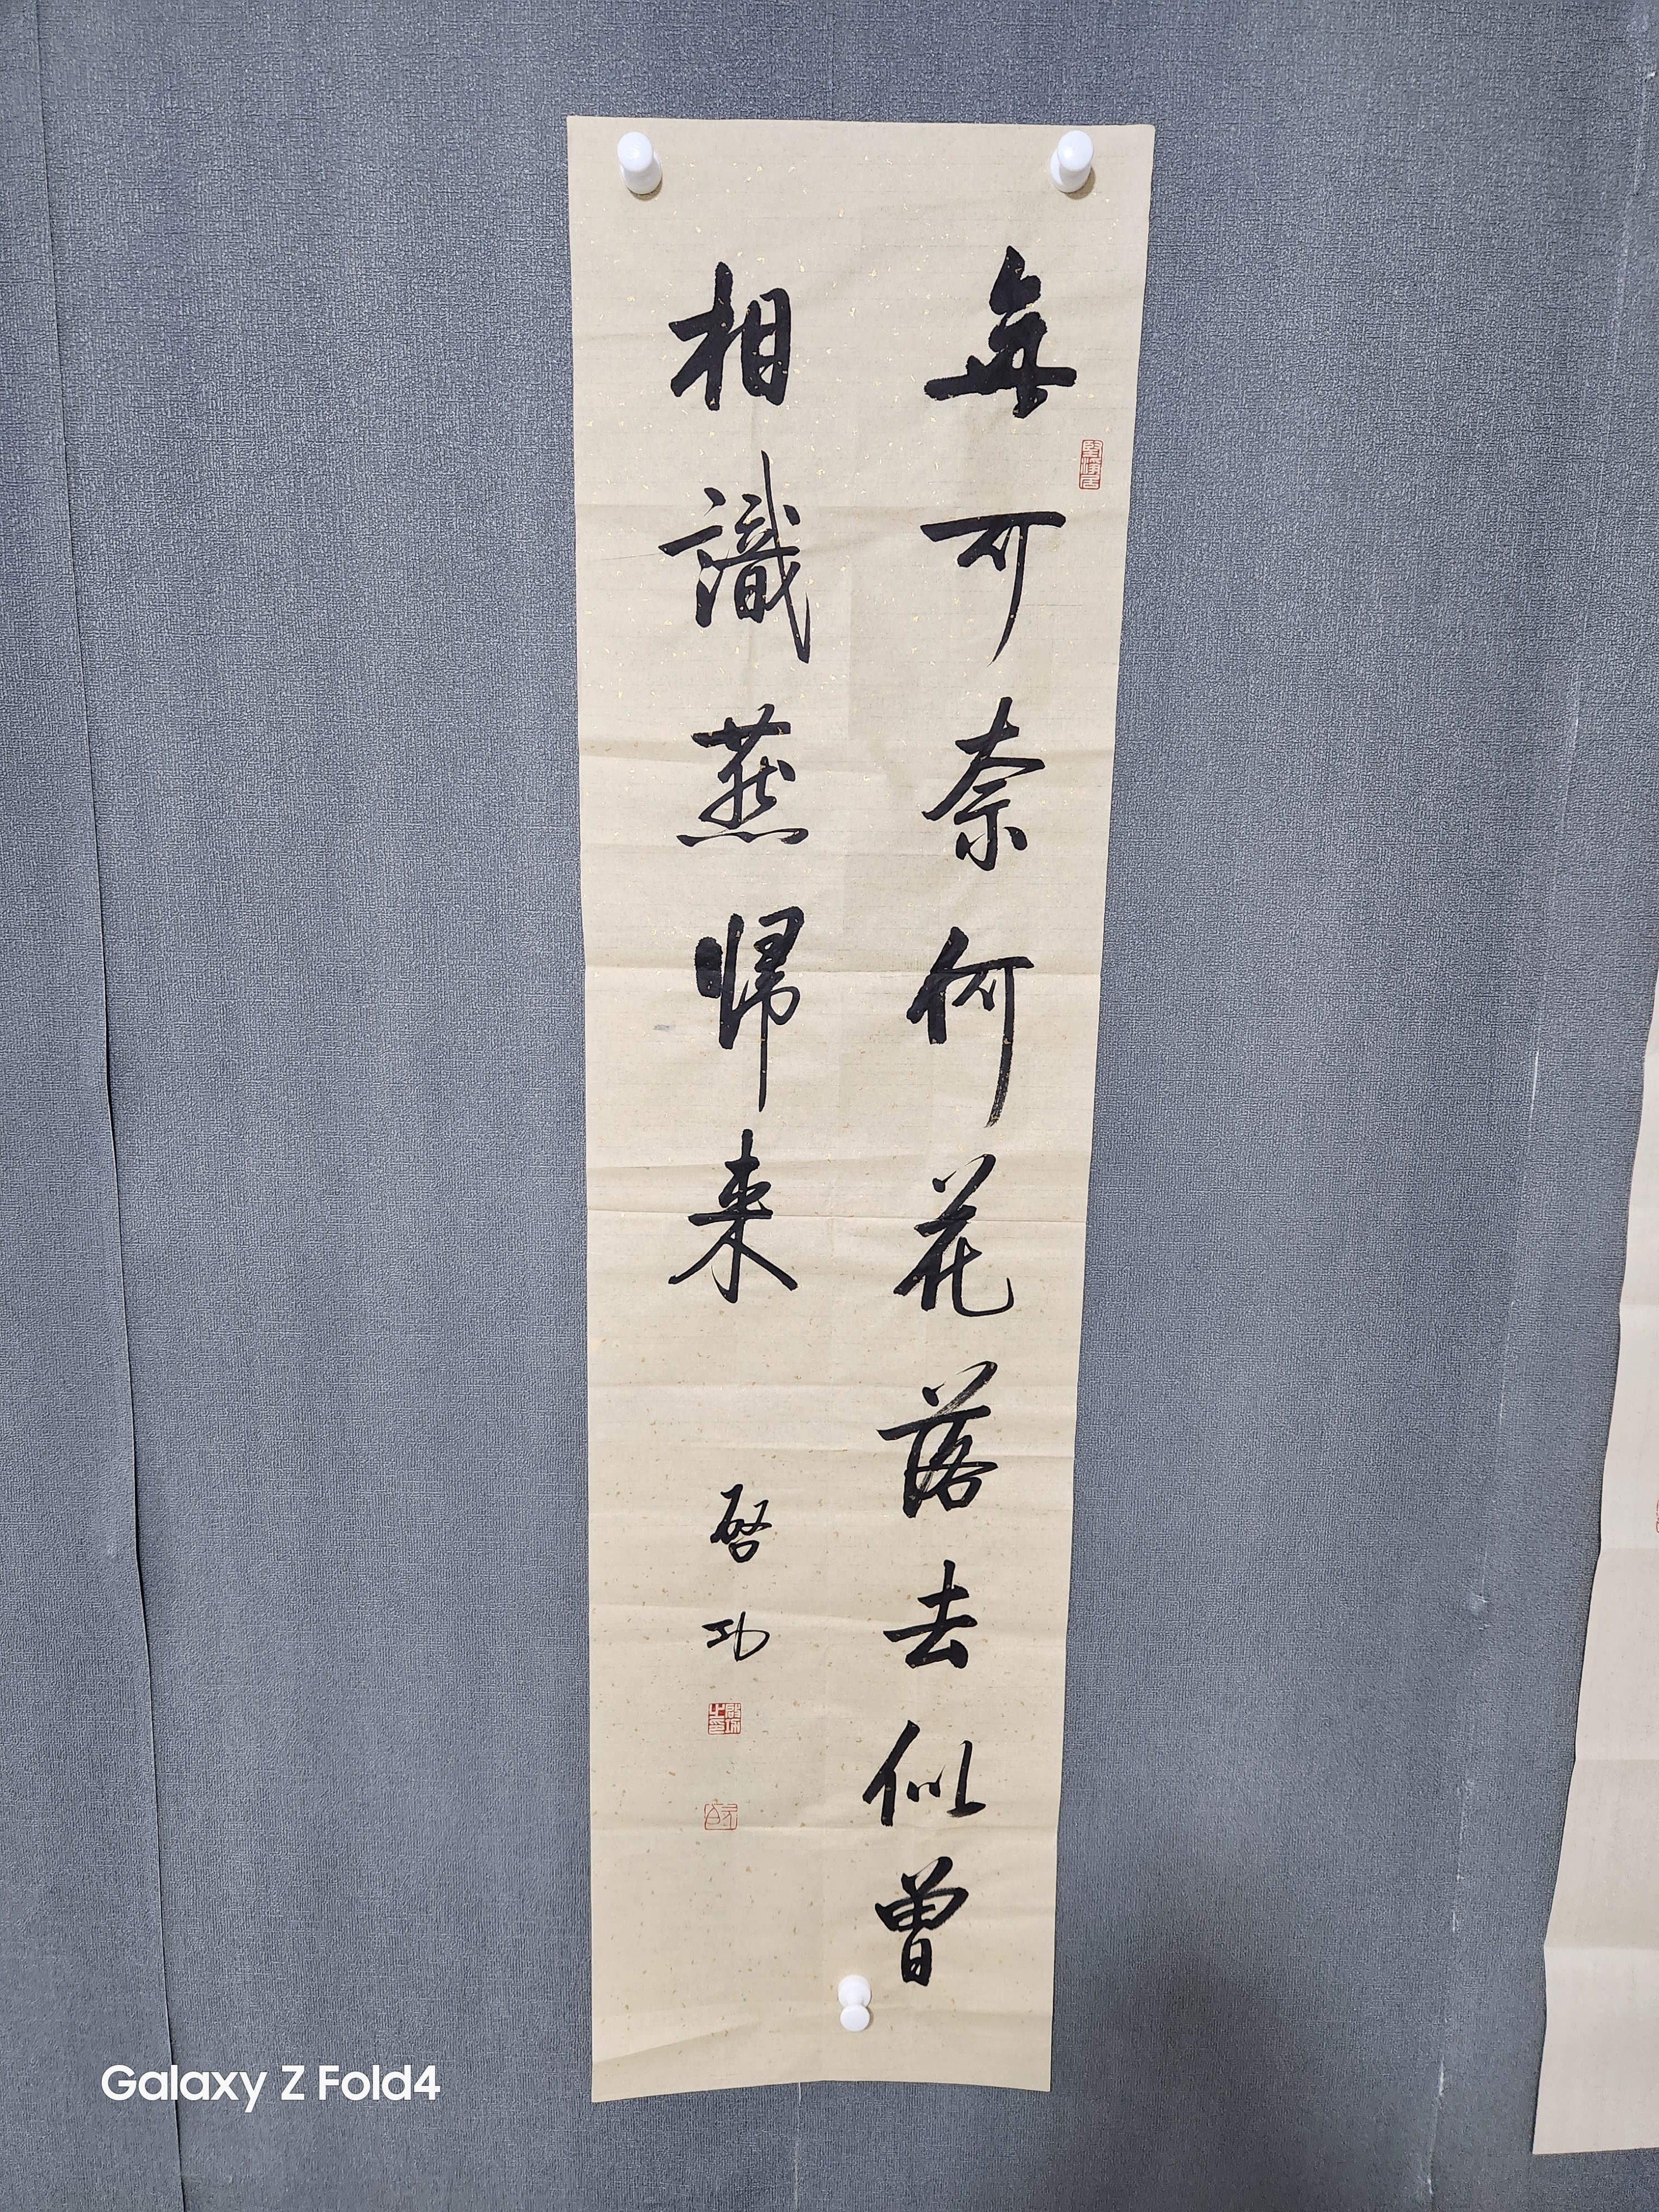 無可奈何花落去似曾
相識燕歸来
啓功
Galaxy Z Fold4